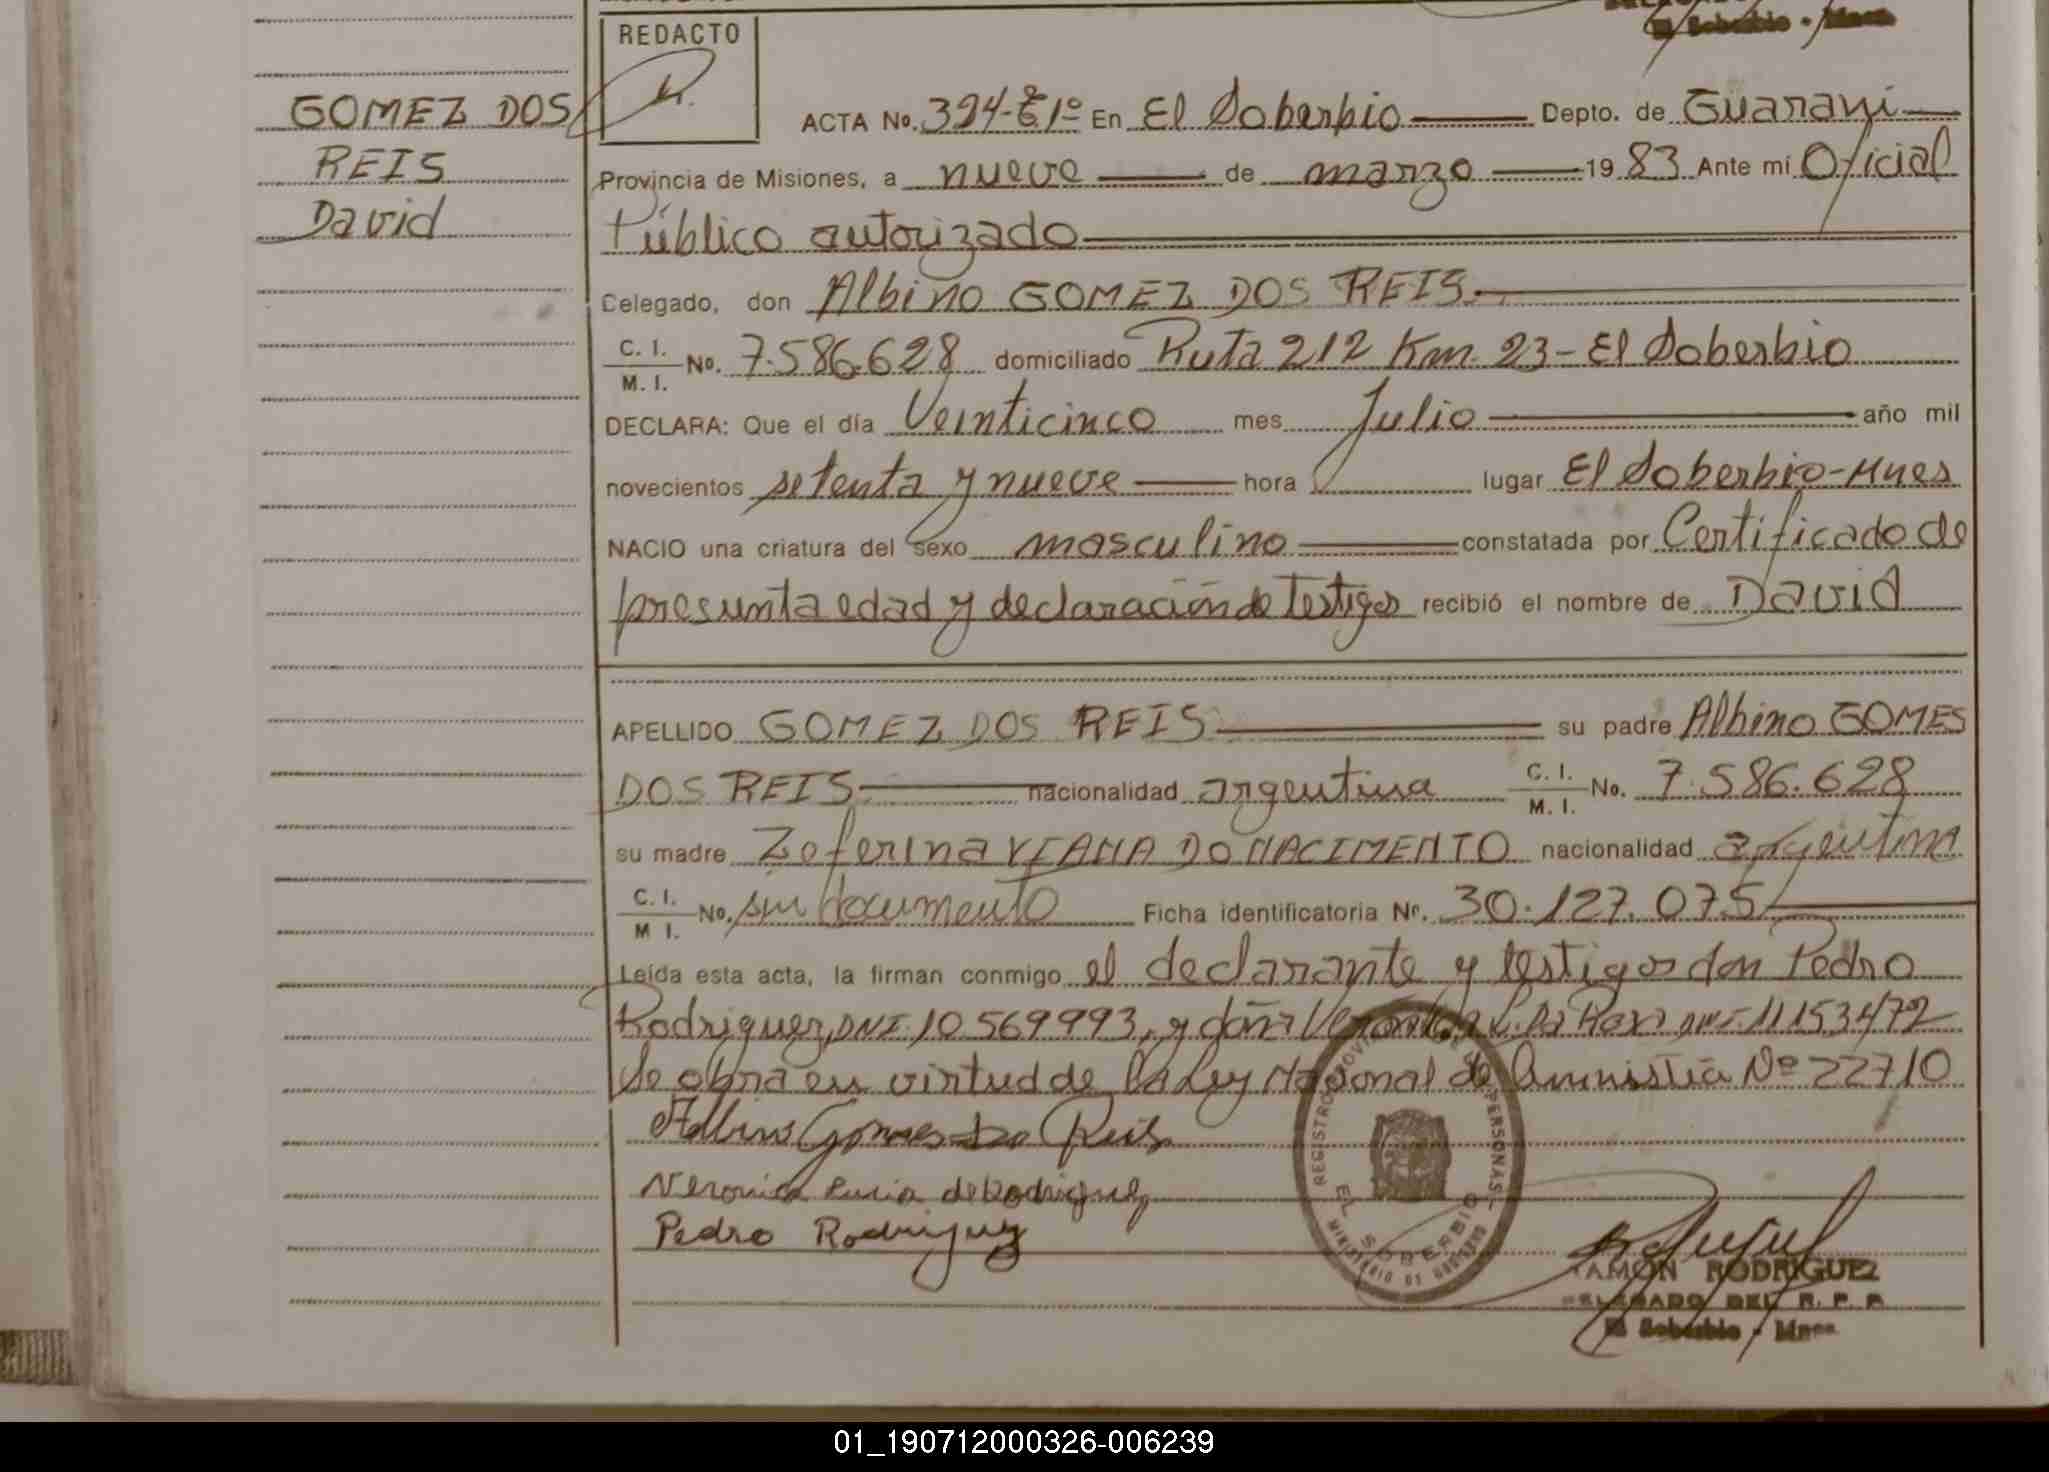 El Soberbio - Mnes
REDACTO
GOMEZ DOS
REIS
David
ACTA No. 394-Tº1º En El Soberbio Depto. de Guarani
Provincia de Misiones, a nueve de marzo 19 83 Ante mi Oficial
Público autorizado
Celegado, don Albino GOMEZ DOS REIS
C. I. M. I. No. 7.586.628 domiciliado Ruta 212 Km. 23 - El Soberbio
DECLARA: Que el día Veinticinco mes Julio año mil
novecientos setenta y nueve hora lugar El Soberbio-Mnes
NACIO una criatura del sexo masculino constatada por Certificado de
presunta edad y declaración de Testigos recibió el nombre de David
APELLIDO GOMEZ DOS REIS su padre Albino GOMES
DOS REIS nacionalidad argentina C. I. M. I. No. 7.586.628
su madre Zeferina VIANA DO NACIMENTO nacionalidad argentina
C. I. M I. No. sin documento Ficha identificatoria Nº. 30.127.075
Leída esta acta, la firman conmigo el declarante y testigos don Pedro
Rodriguez, DNI. 10.569993, y doña L. Da Rosa DNI
Se obra en virtud de la Ley Nacional de Amnistia Nº 22710
Albino Gomes Do Reis
Veronica Lucia de Rodriguez
Pedro Rodriguez
REGISTRO PROVINCIAL DE LAS PERSONAS
EL SOBERBIO
MINISTERIO DE GOBIERNO
RAMON RODRIGUEZ
DELEGADO DEL R. P. P.
El Soberbio - Mnes.
01_190712000326-006239